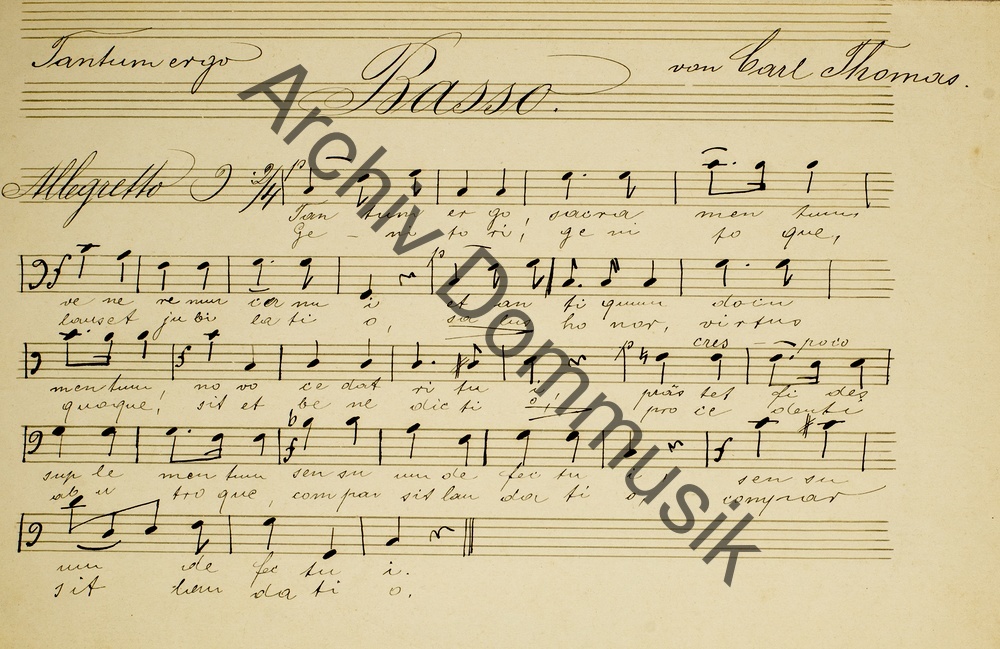 Tantum ergo
Basso.
von Carl Thomas.
Archiv Dommusik
Allegretto 2/4 p
Tan tum er go, sacra men tum,
Ge - ni to ri, ge ni to que,
f p
ve ne re mur cer nu i et an ti quum docu
lauset ju bi la ti o, sa lus ho nor, virtus
cres - poco
f p
mentum, no vo ce dat ri tu i, präs tet fi des
quoque, sit et be ne dic ti o, pro ce denti
f f
sup le mentum sen su um de fec tu i, sen su
ab u tro que, compar sit lau da ti o, compar
um de fec tu i.
sit lau da ti o.